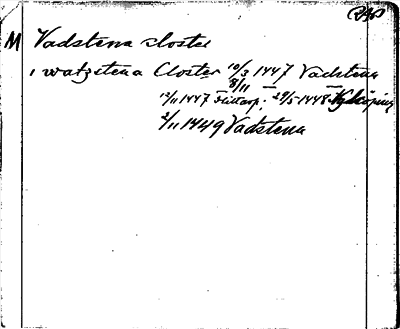 M Vadstena kloster
i watzstena Closter 10/3 1447 Vadstena
8/11 — —
12/11 1447 29/5 1448 Nyköping
2/11 1449 Vadstena